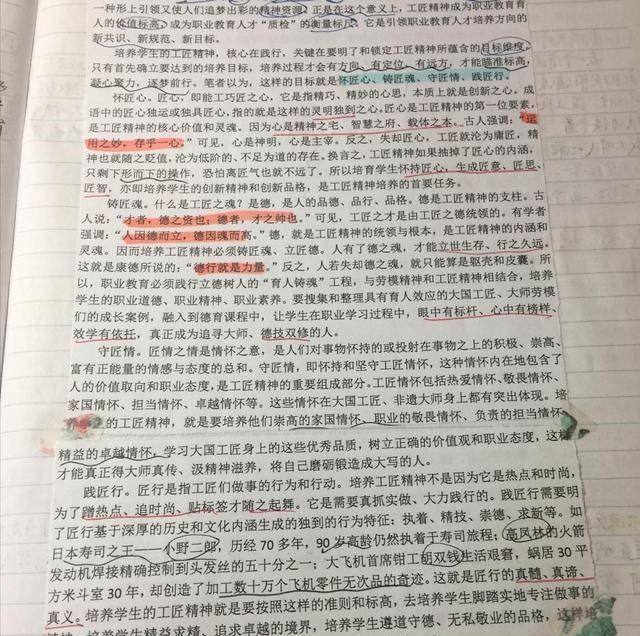 一种形上引领又使人们追梦出彩的精神资源。正是在这个意义上，工匠精神成为职业教育育
人的价值标高，成为职业教育人才“质检”的衡量标尺。它是引领职业教育人才培养方向的
新共识、新规范、新目标。
培养学生的工匠精神，核心在践行，关键在要明了和锁定工匠精神所蕴含的目标维度。
只有首先确立要达到的培养目标，培养过程才会有方向、有定位、有远方，才能瞄准标高，
凝心聚力，逐梦前行。笔者以为，这样的目标就是怀匠心、铸匠魂、守匠情、践匠行。
怀匠心。匠心，即能工巧匠之心，它是指精巧、精妙的心思，本质上就是创新之心。成
语中的匠心独运或独具匠心，指的就是这样的灵明独到之心。匠心是工匠精神的第一位要素，
是工匠精神的核心价值和灵魂。因为心是精神之宅、智慧之府、载体之本。古人强调：“运
用之妙，存乎一心。”可见，心是神明，心是主宰。反之，失却匠心，工匠就沦为庸匠，精
神也就随之贬值，沦为低阶的、不足为道的存在。换言之，工匠精神如果抽掉了匠心的内涵，
只剩下形而下的操作，恐怕离匠气也就不远了。所以培育学生怀持匠心，生成匠意、匠思、
匠智，亦即培养学生的创新精神和创新品格，是工匠精神培养的首要任务。
铸匠魂。什么是工匠之魂？是德，是人的品德、品行、品格。德是工匠精神的支柱。古
人说：“才者，德之资也；德者，才之帅也。”可见，工匠之才是由工匠之德统领的。有学者
强调：“人因德而立，德因魂而高。”德，就是工匠精神的统领与根本，是工匠精神的内涵和
灵魂。因而培养工匠精神必须铸匠魂、立匠德。人有了德之魂，才能立世生存、行之久远。
这就是康德所说的：“德行就是力量。”反之，人若失却德之魂，就只能算是躯壳和皮囊。所
以，职业教育必须践行立德树人的“育人铸魂”工程，与劳模精神和工匠精神相结合，培养
学生的职业道德、职业精神、职业素养。要搜集和整理具有育人效应的大国工匠、大师劳模
们的成长案例，融入到德育课程中，让学生在职业学习过程中，眼中有标杆、心中有榜样、
效学有依托，真正成为追寻大师、德技双修的人。
守匠情。匠情之情是情怀之意，是人们对事物怀持的或投射在事物之上的积极、崇高、
富有正能量的情感与态度的总和。守匠情，即怀持和坚守工匠情怀，这种情怀内在地包含了
人的价值取向和职业态度，是工匠精神的重要组成部分。工匠情怀包括热爱情怀、敬畏情怀、
家国情怀、担当情怀、卓越情怀等。这些情怀在大国工匠、非遗大师身上都有突出体现。培
养学生的工匠精神，就是要培养他们崇高的家国情怀、职业的敬畏情怀、负责的担当情怀
精益的卓越情怀，学习大国工匠身上的这些优秀品质，树立正确的价值观和职业态度，这样
才能真正得大师真传、汲精神滋养，将自己磨砺锻造成大写的人。
践匠行。匠行是指工匠们做事的行为和行动。培养工匠精神不是因为它是热点和时尚，
为了蹭热点、追时尚、贴标签才随之起舞。它是需要真抓实做、大力践行的。践匠行需要明
了匠行基于深厚的历史和文化内涵生成的独到的行为特征：执着、精技、崇德、求新等。如
日本寿司之王——小野二郎，历经 70 多年，90 岁高龄仍然执着于寿司旅程；高凤林的火箭
发动机焊接精确控制到头发丝的五十分之一；大飞机首席钳工胡双钱生活艰窘，蜗居 30 平
方米斗室 30 年，却创造了加工数十万个飞机零件无次品的奇迹。这就是匠行的真髓、真谛、
真义。培养学生的工匠精神就是要按照这样的准则和标高，去培养学生脚踏实地专注做事的
培养学生精益求精、追求卓越的境界，培养学生遵道守德、无私敬业的品格，这样培